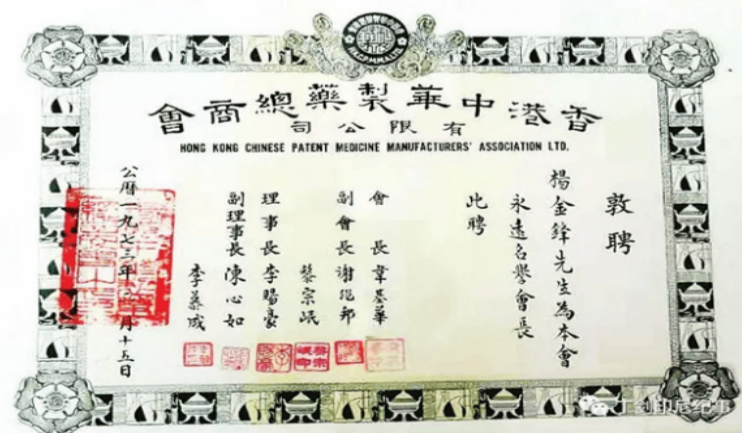 香港中華製藥總商會
有限公司
HONG KONG CHINESE PATENT MEDICINE MANUFACTURERS' ASSOCIATION LTD.
敦聘
楊金鋒先生為本會
永遠名譽會長
此聘
會長韋基華
副會長謝兆邦
蔡宗岷
理事長李賜豪
副理事長陳心如
李慕威
公曆一九七三年 月十五日
印尼纪事